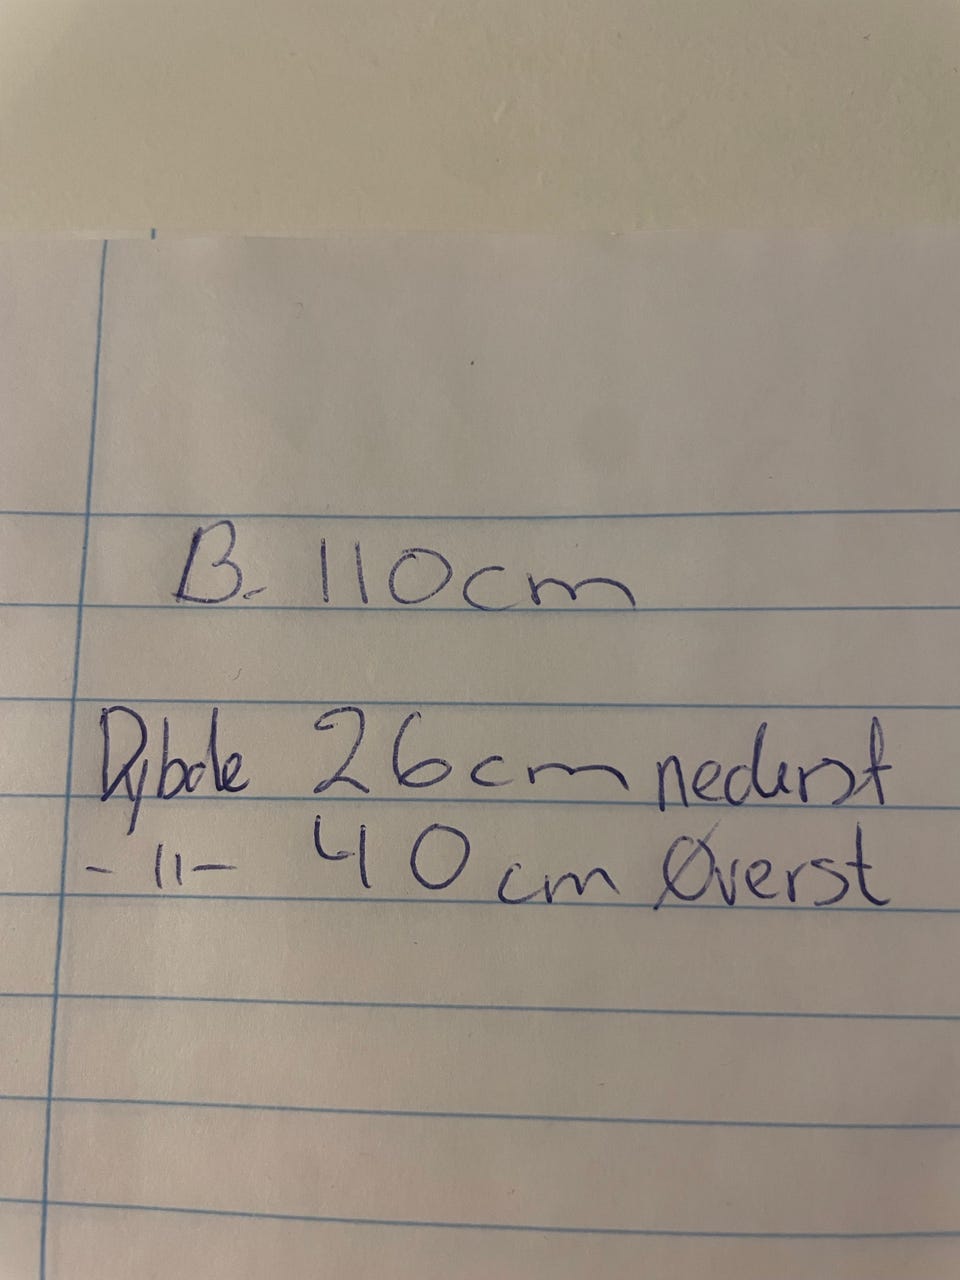 B. 110cm
Dybde 26cm nederst
-11- 40cm Øverst